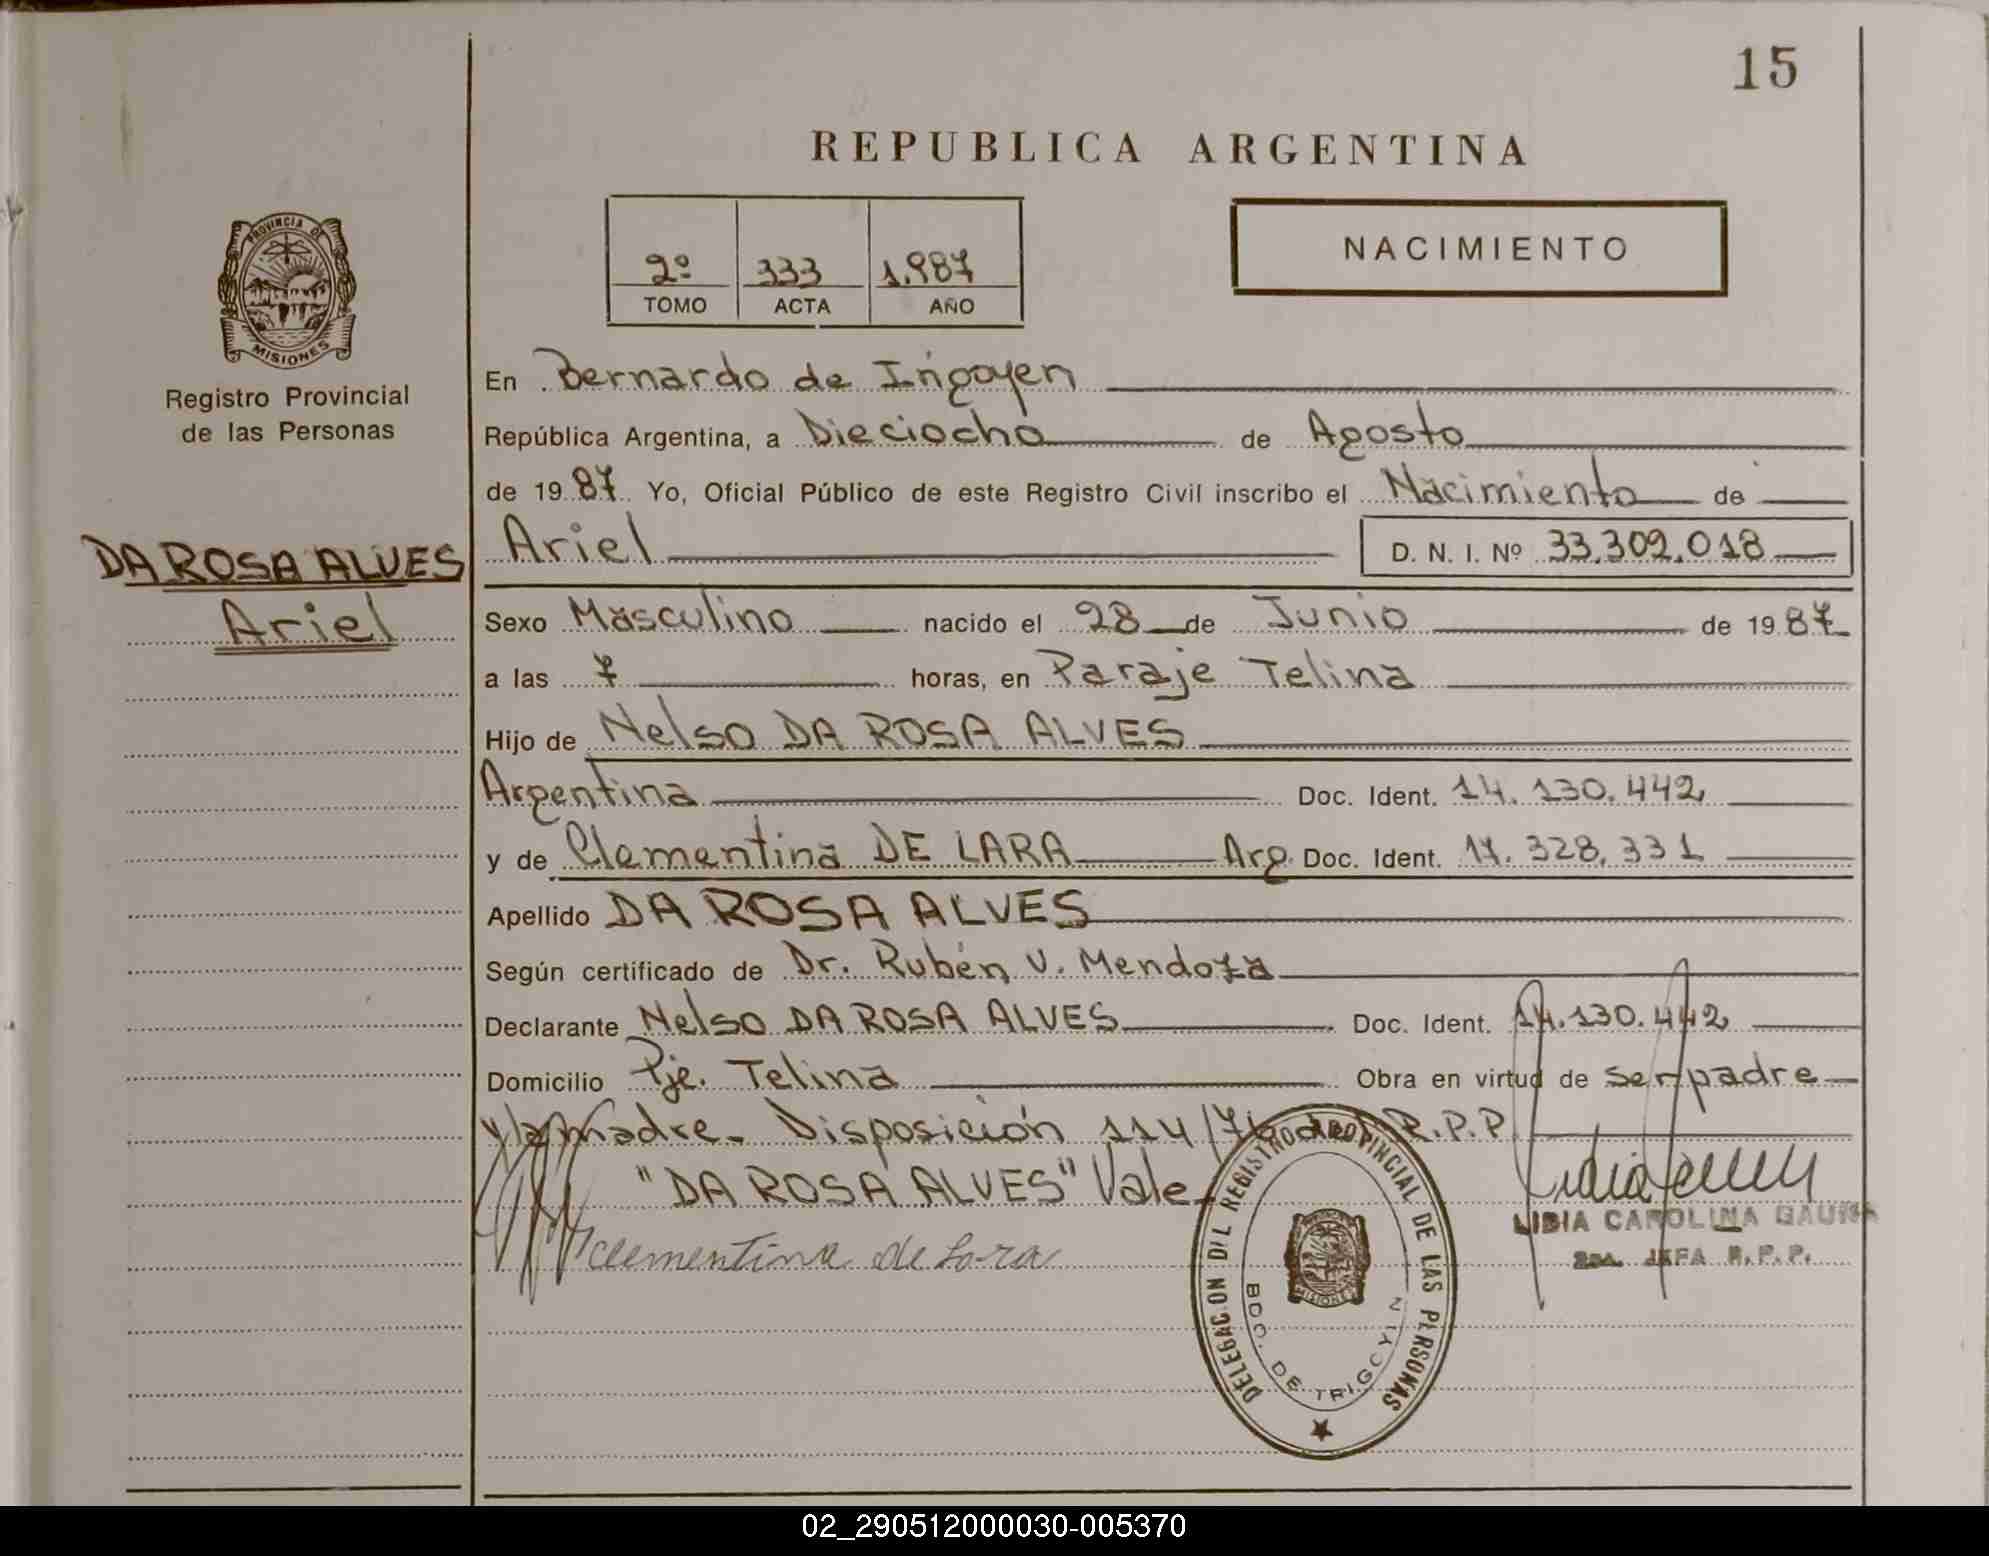 15
REPUBLICA ARGENTINA
2º 333 1.987
TOMO ACTA AÑO
NACIMIENTO
PROVINCIA DE
MISIONES
Registro Provincial
de las Personas
DA ROSA ALVES
Ariel
En Bernardo de Irigoyen
República Argentina, a Dieciocho de Agosto
de 1987 Yo, Oficial Público de este Registro Civil inscribo el Nacimiento de
Ariel D. N. I. Nº 33.302.018
Sexo Masculino nacido el 28 de Junio de 1987
a las 7 horas, en Paraje Telina
Hijo de Nelso DA ROSA ALVES
Argentina Doc. Ident. 14.130.442
y de Clementina DE LARA Arg. Doc. Ident. 17.328.331
Apellido DA ROSA ALVES
Según certificado de Dr. Rubén V. Mendoza
Declarante Nelso DA ROSA ALVES Doc. Ident. 14.130.442
Domicilio Pje. Telina Obra en virtud de ser padre
y la madre. Disposición 114/76 del R.P.P
"DA ROSA ALVES" Vale.
clementina de Lara
LIDIA CAROLINA
JEFA R.P.P.
DELEGACION DEL REGISTRO PROVINCIAL DE LAS PERSONAS
BDO. DE IRIGOYEN
MISIONES
02_290512000030-005370